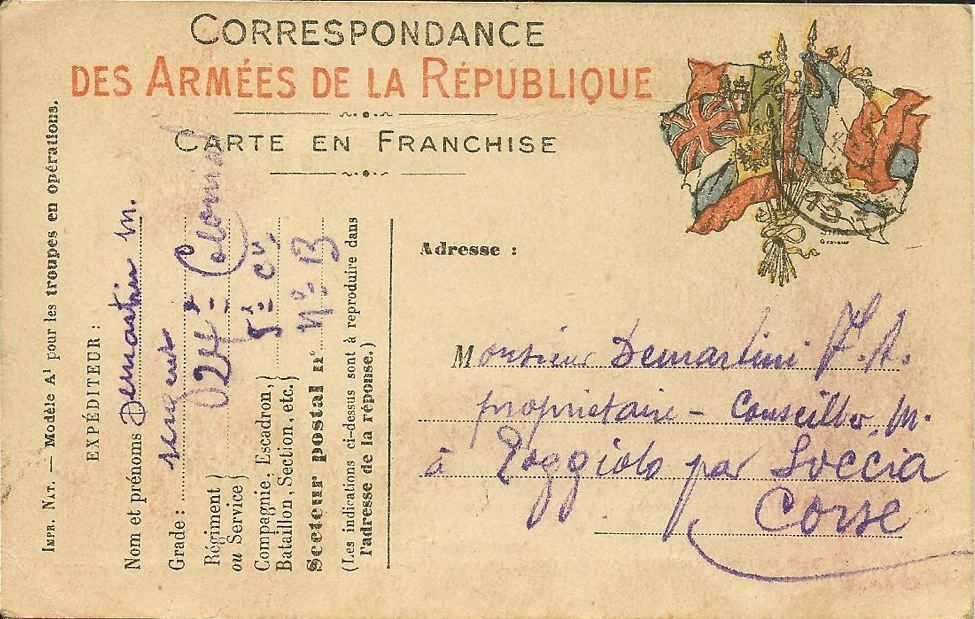 CORRESPONDANCE
DES ARMÉES DE LA RÉPUBLIQUE
CARTE EN FRANCHISE
IMPR. NAT. — Modèle A¹ pour les troupes en opérations.
EXPÉDITEUR :
Nom et prénoms Demartini M.
Grade :
Régiment } 24e Colonial
ou Service }
Compagnie, Escadron, } 5e Cie
Bataillon, Section, etc. }
Secteur postal n° No 13
(Les indications ci-dessus sont à reproduire dans
l'adresse de la réponse.)
Adresse :
Monsieur Demartini F. A.
propriétaire - Conseiller M.
à Poggiolo par Soccia
Corse
13
Graveur